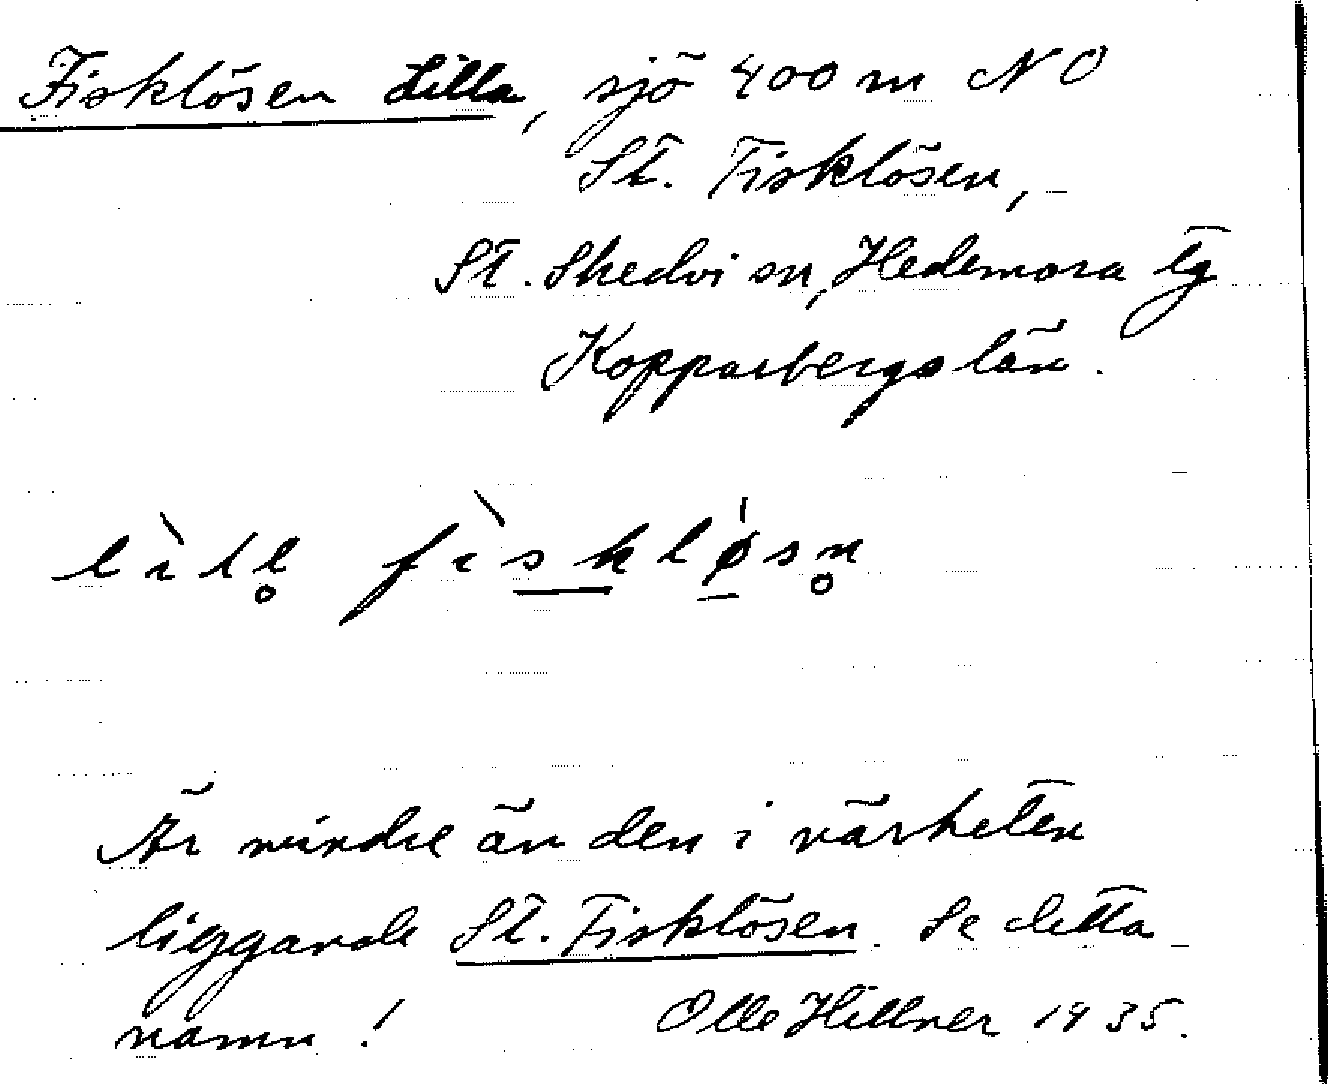 Fisklösen Lilla, sjö 400 m NO
St. Fisklösen,
St. Skedvi sn, Hedemora tg
Kopparbergs län.
lìll̥ fìskløsn̥
Är mindre än den i närheten
liggande St. Fisklösen. Se detta
namn! Olle Hillner 1935.